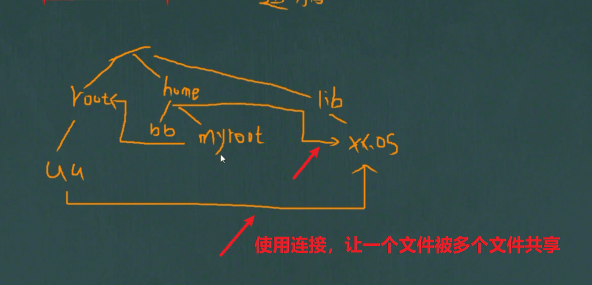 root home lib
bb myroot xx.os
uu
使用连接，让一个文件被多个文件共享